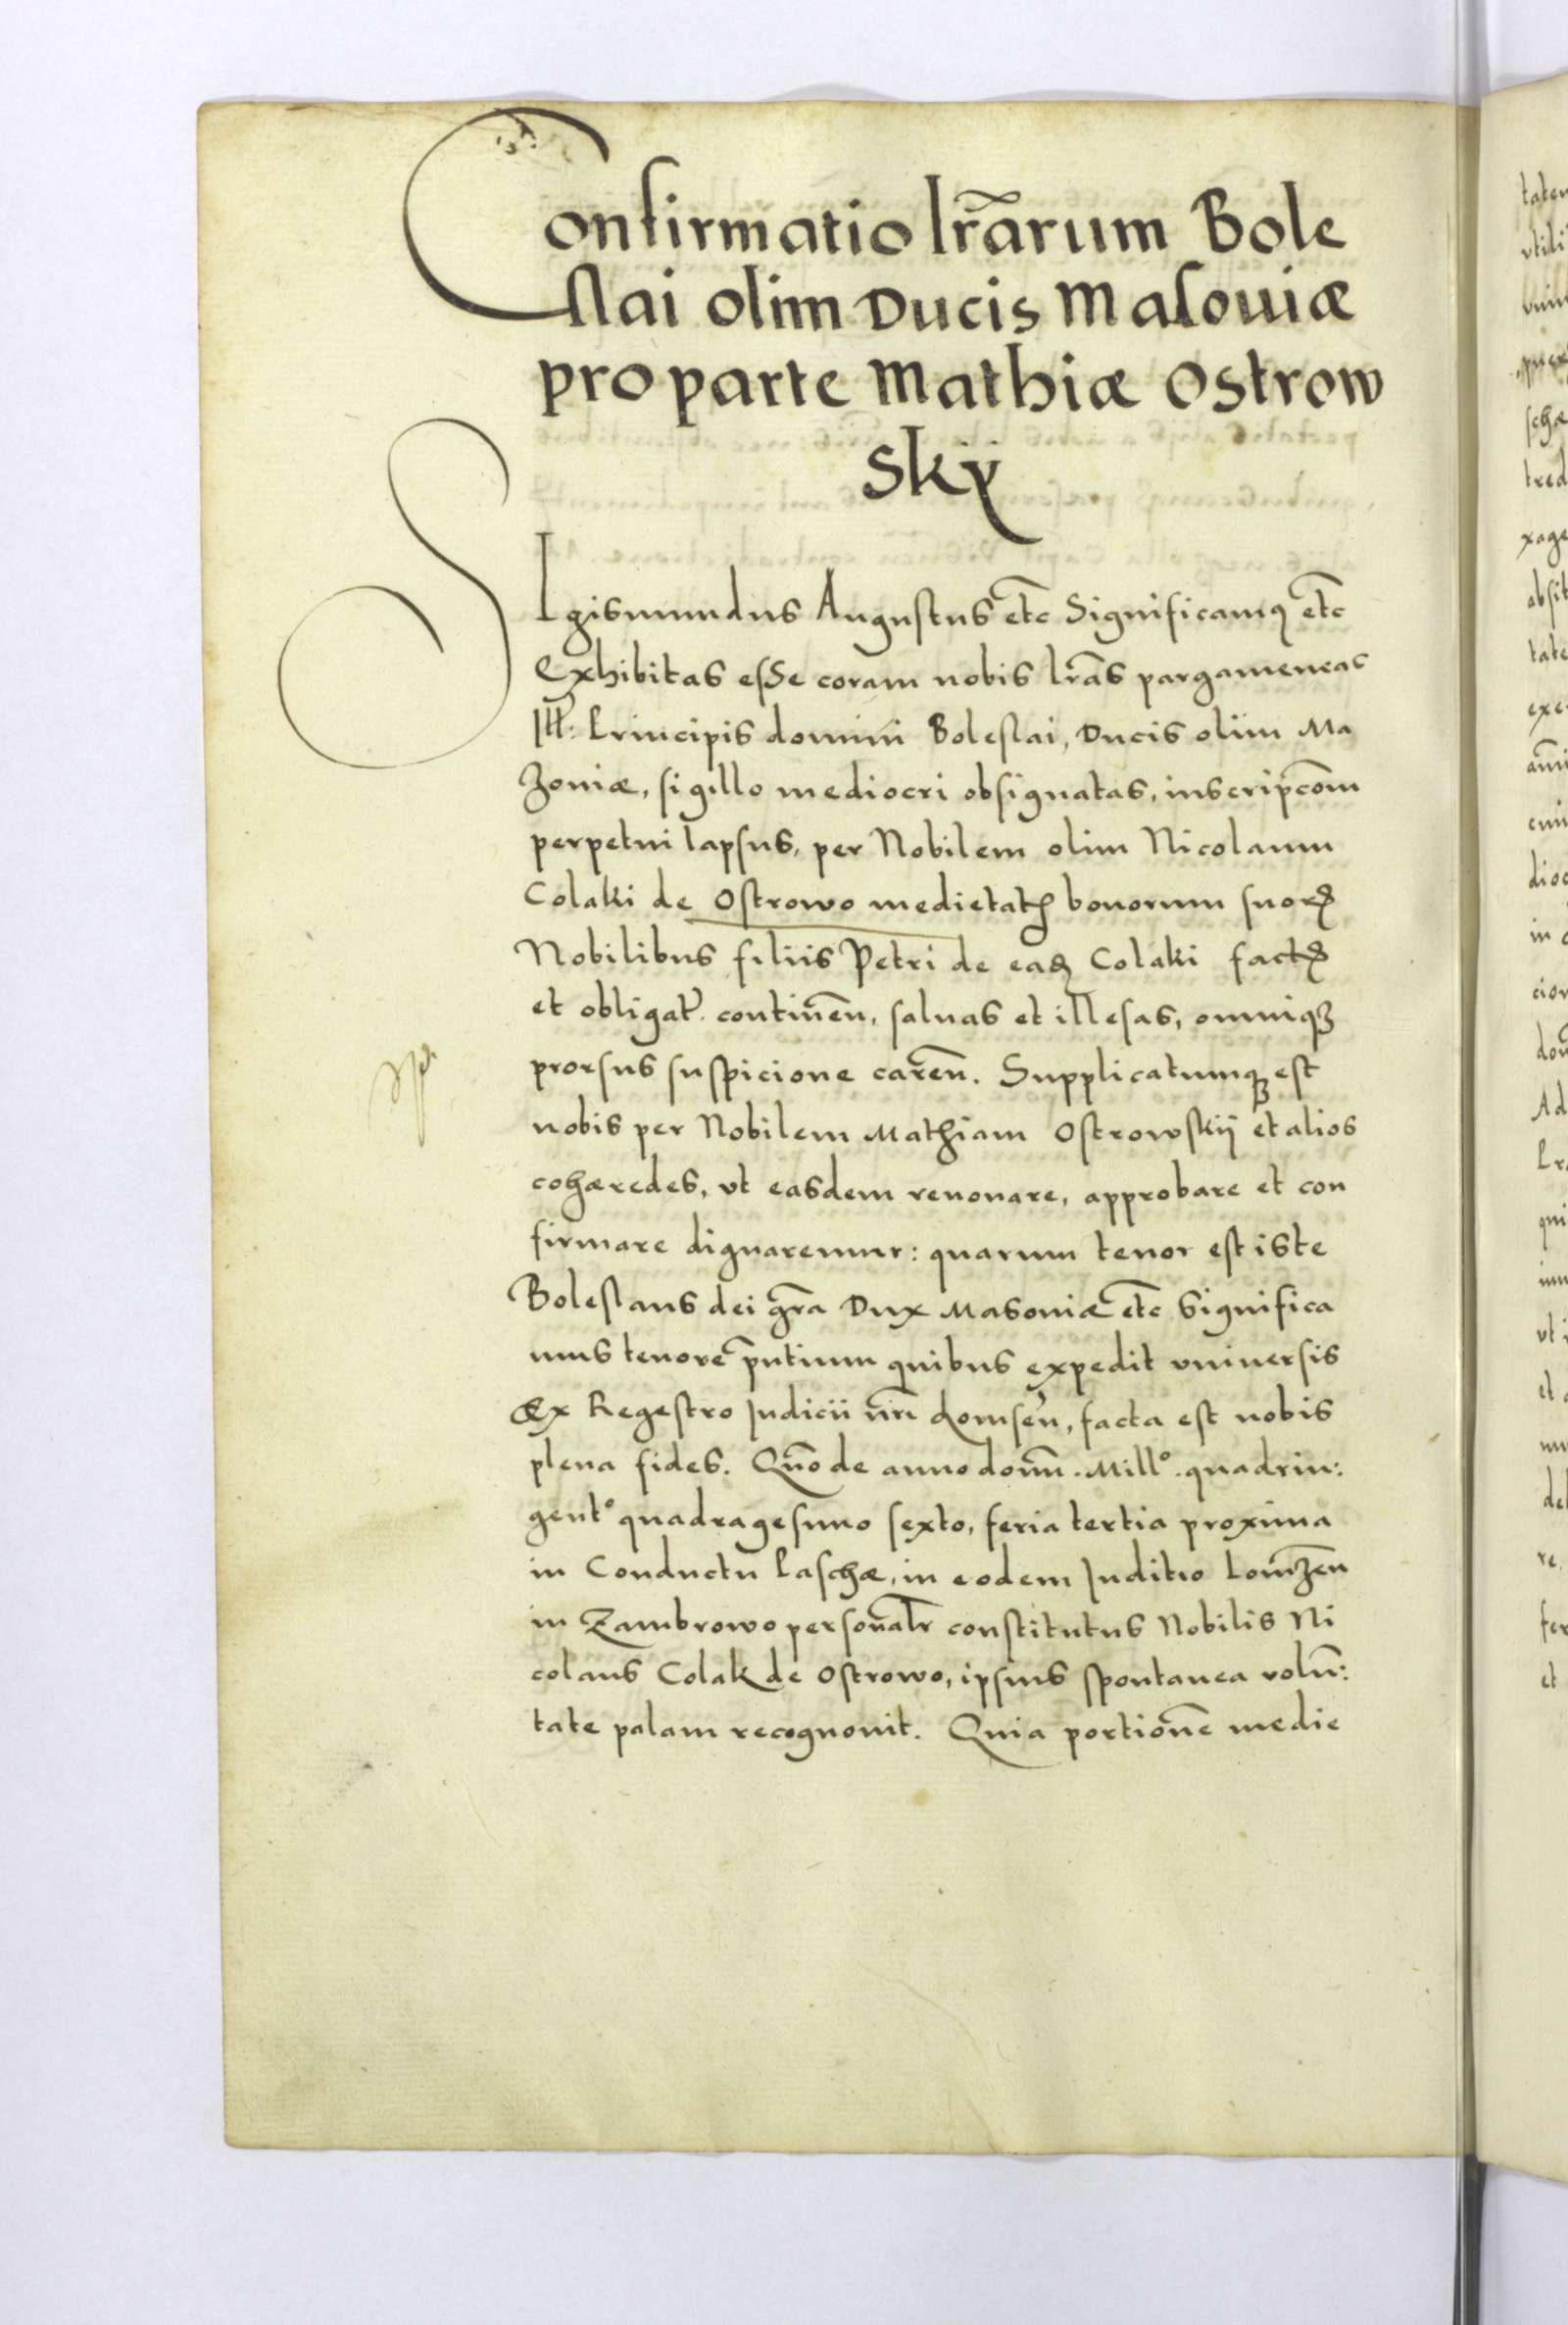 Confirmatio lr̃arum Bole
slai olim Ducis Masouiæ
pro parte Mathiæ Ostrow
skÿ
SIgismundus Augustus etc̃ Significamꝰ etc̃
Exhibitas esse coram nobis lr̃as pargameneas
Ill: Principis domini Boleslai, Ducis olim Ma
zouiæ, sigillo mediocri obsignatas, inscripc̃om
perpetui lapsus, per Nobilem olim Nicolaum
Colaki de Ostrowo medietatꝭ bonorum suorꝝ
Nobilibus filiis Petri de eadꝫ Colaki factꝭ
et obligat̃. continẽn, saluas et illesas, omniqꝫ
prorsus suspicione carẽn. Supplicatumqꝫ est
nobis per Nobilem Mathiam Ostrowskij et alios
cohæredes, vt easdem renouare, approbare et con
firmare dignaremur: quarum tenor est iste
Boleslaus dei gr̃a Dux Masouiæ etc̃ Significa
mus tenore p̃ntium quibus expedit vniuersis
Ex Regestro Judicii nr̃i Lomsẽn, facta est nobis
plena fides. Quõ de anno domĩ. Mill°. quadrin:
gent° quadragesimo sexto, feria tertia proxima
in Conductu Paschæ, in eodem Juditio Lomzẽn
in Zambrowo personalr̃ constitutus Nobilis Ni
colaus Colak de Ostrowo, ipsius spontanea volũ:
tate palam recognouit. Quia portionẽ medie
tatem
vtili
tred
xage
absit
tate
dioc
in
Ad
qui
vt i
et
re.
et